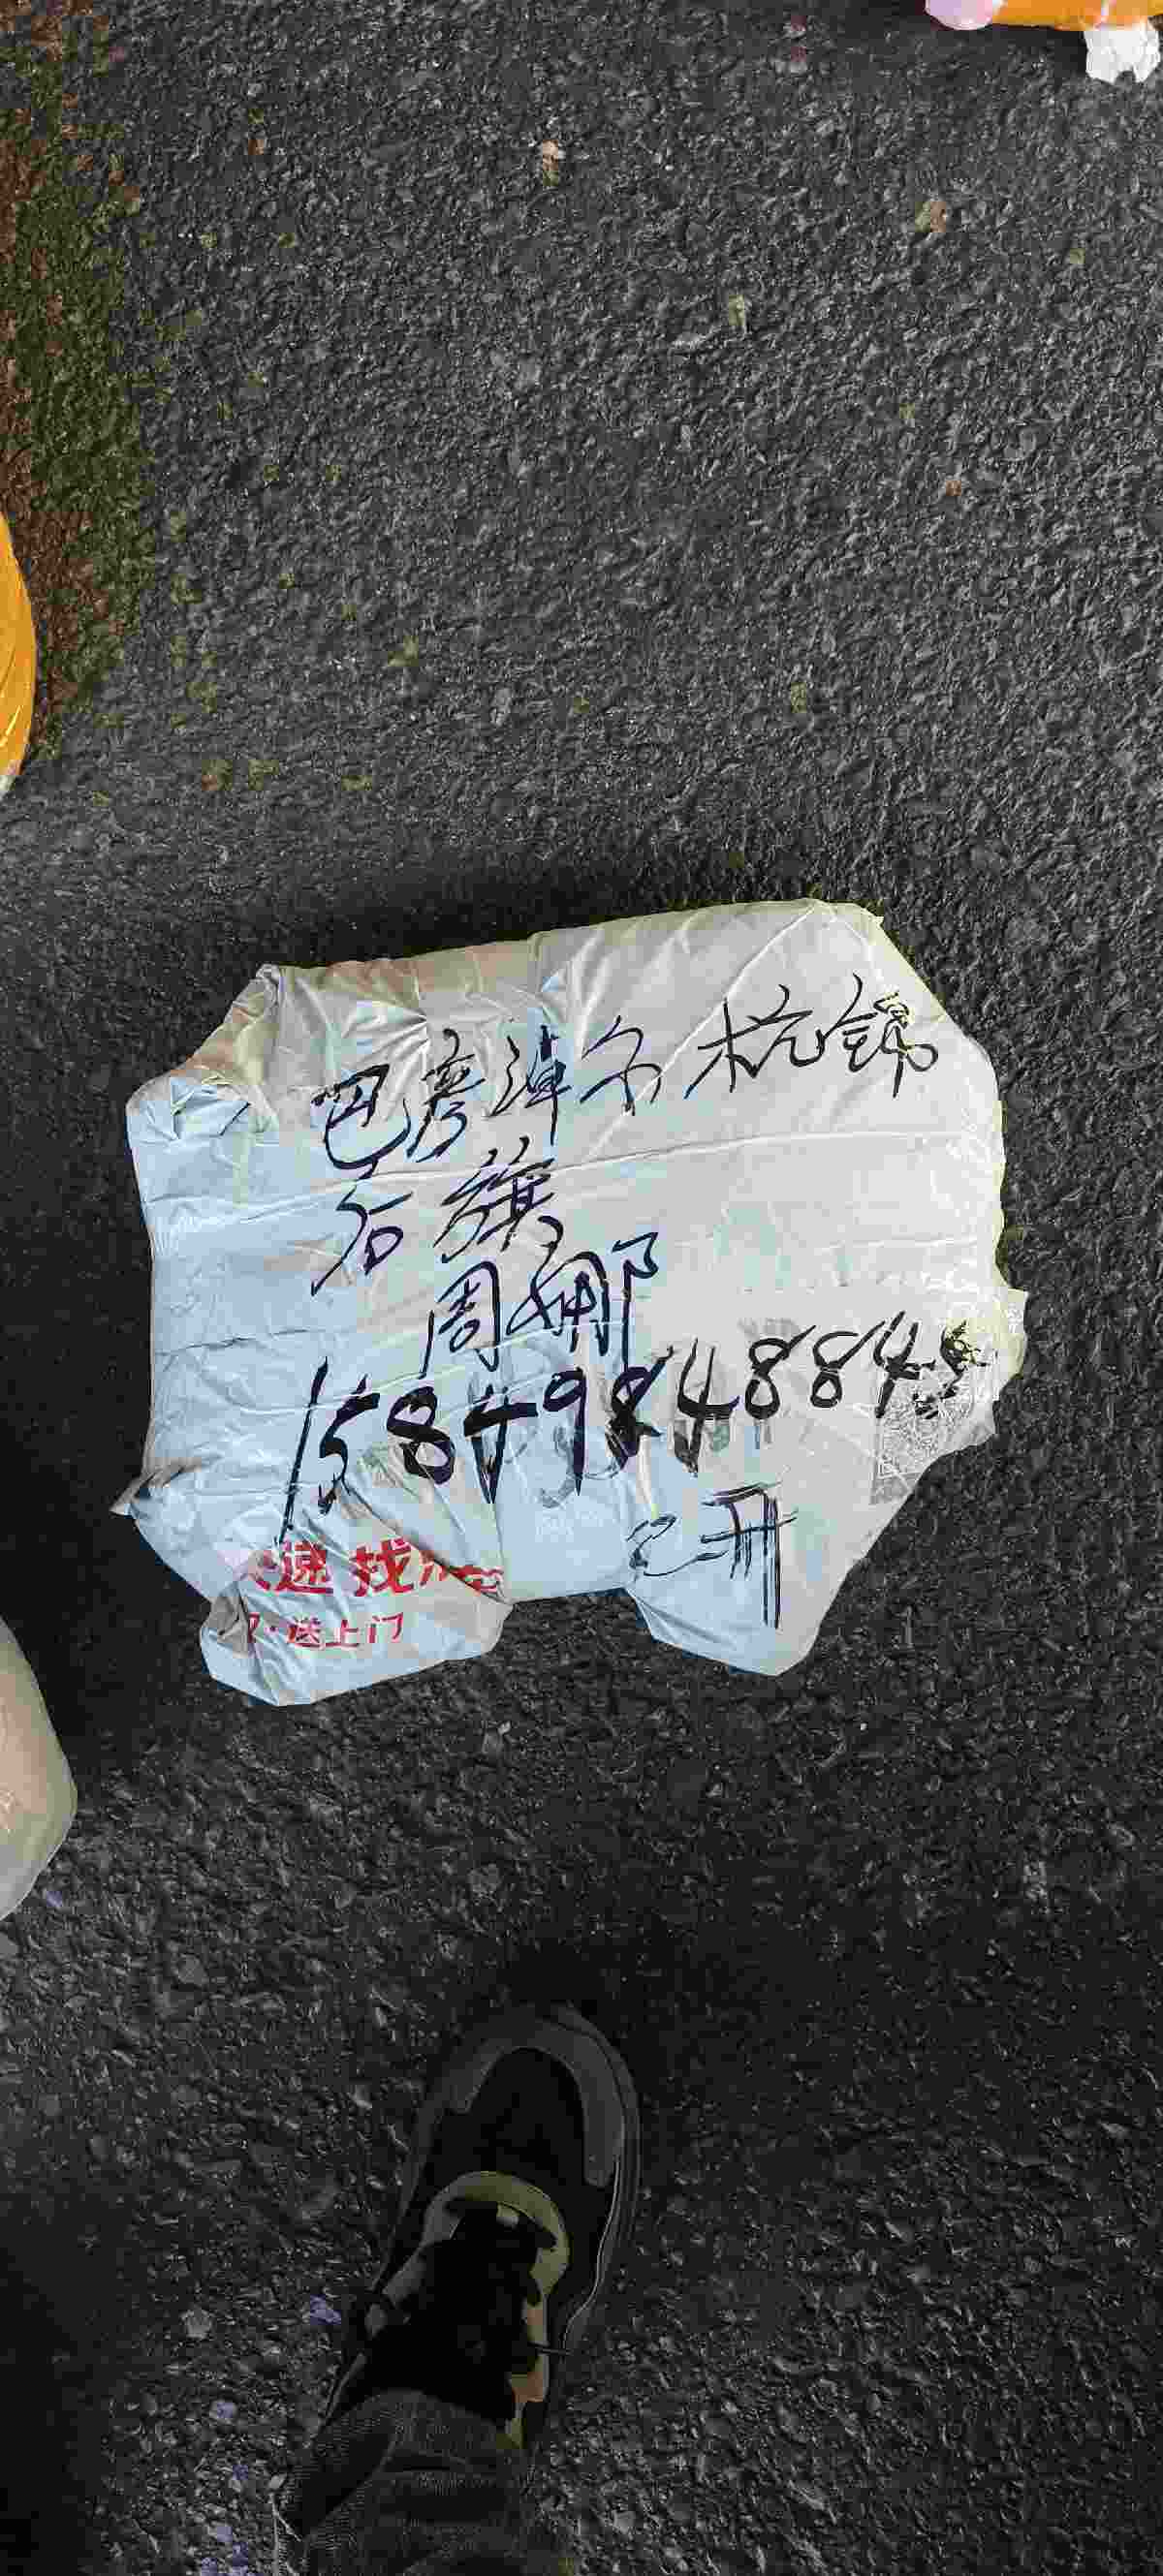 巴彦淖尔 杭锦
后旗
周娜
15849844884
递 找
送上门